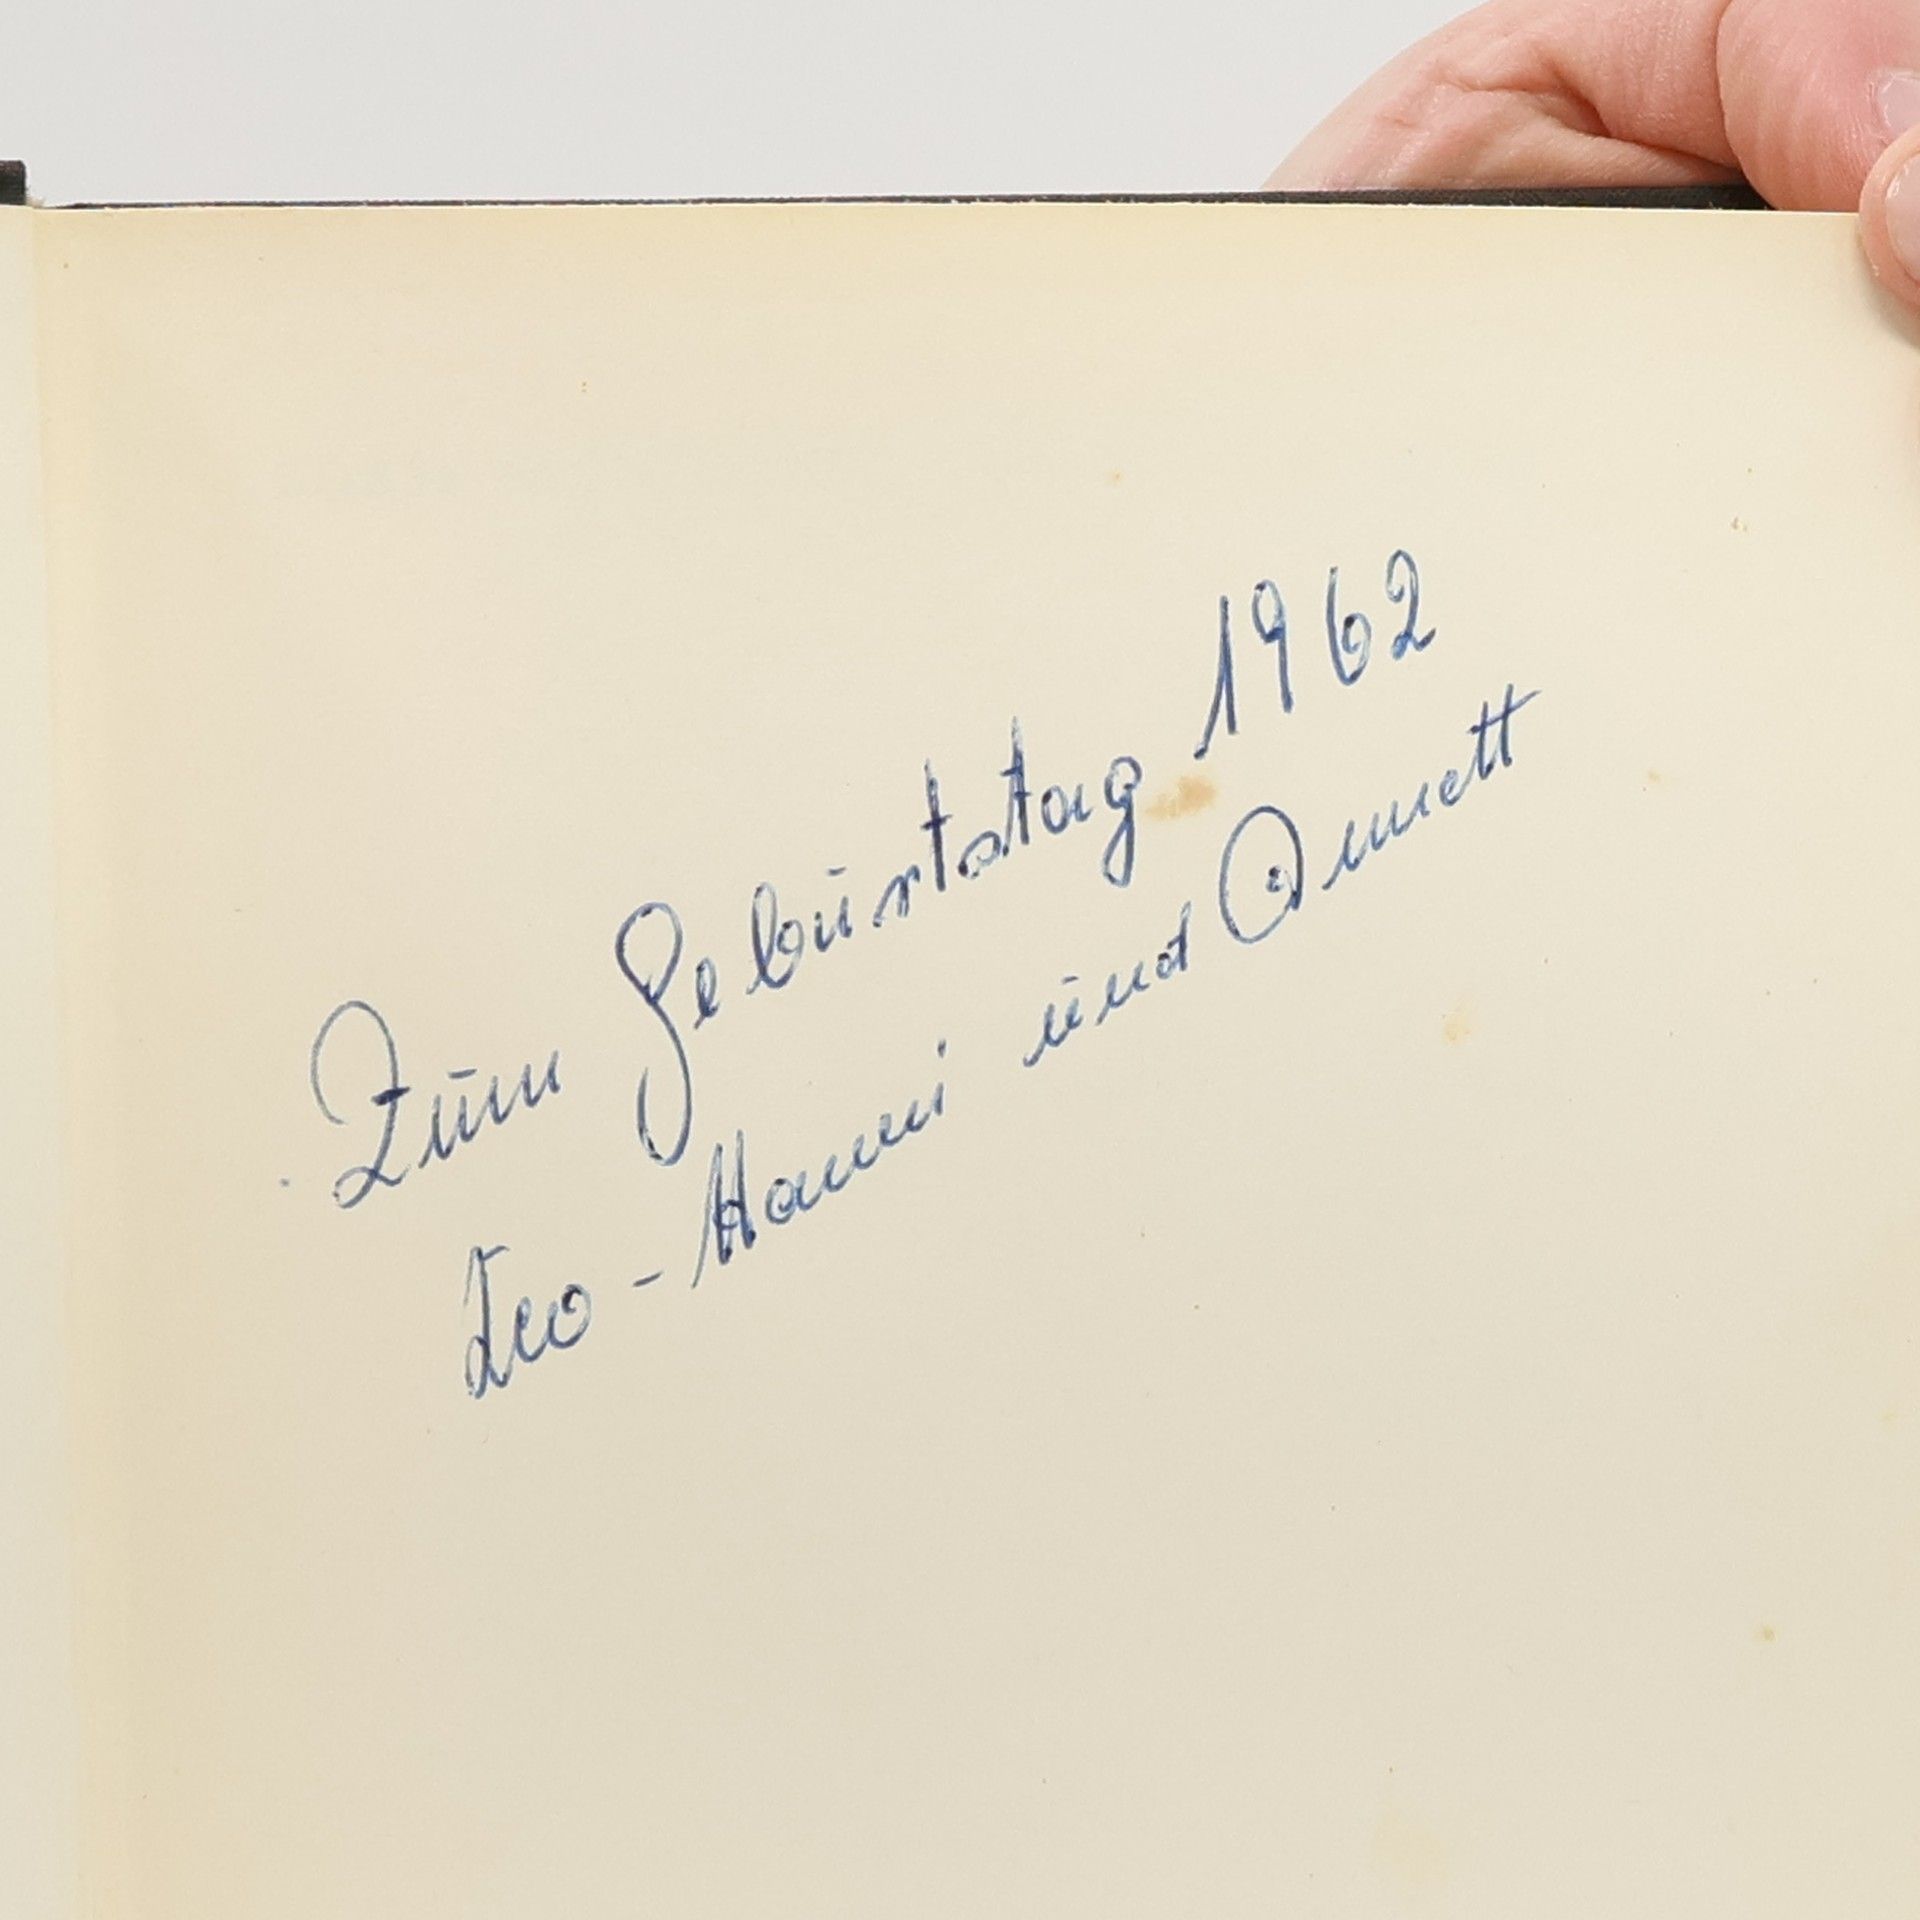 Zum Geburtstag 1962
Leo - Hanni und Annett